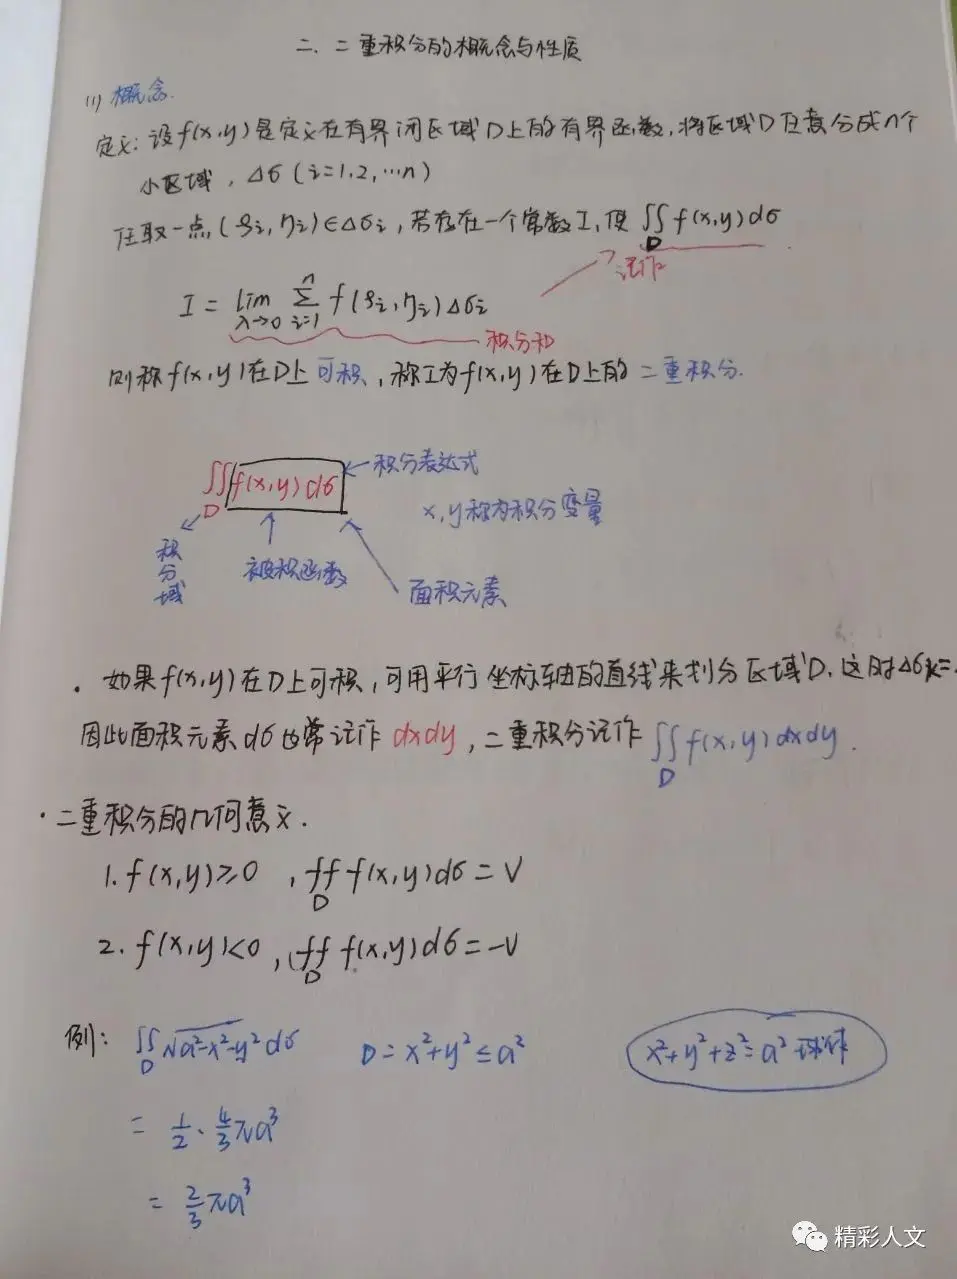 二、二重积分的概念与性质
(1) 概念.
定义: 设f(x,y)是定义在有界闭区域D上的有界函数,将区域D任意分成n个
小区域, Δσ (i=1,2,…n)
任取一点,(ξi,ηi)∈Δσi,若存在一个常数I,使 ∬D f(x,y)dσ
记作
I = lim λ→0 Σ i=1 n f(ξi,ηi)Δσi
积分和
则称f(x,y)在D上可积,称I为f(x,y)在D上的二重积分.
∬D f(x,y)dσ ←积分表达式
x,y称为积分变量
积分域
被积函数
面积元素
· 如果f(x,y)在D上可积,可用平行坐标轴的直线来划分区域D.这时Δσk=
因此面积元素dσ也常记作dxdy,二重积分记作∬D f(x,y)dxdy.
· 二重积分的几何意义.
1. f(x,y)≥0 , ∬D f(x,y)dσ = V
2. f(x,y)<0 , ∬D f(x,y)dσ = -V
例: ∬D √a²-x²-y² dσ D = x²+y² ≤ a² x²+y²+z²=a² 球体
= 1/2 · 4/3 πa³
= 2/3 πa³
精彩人文